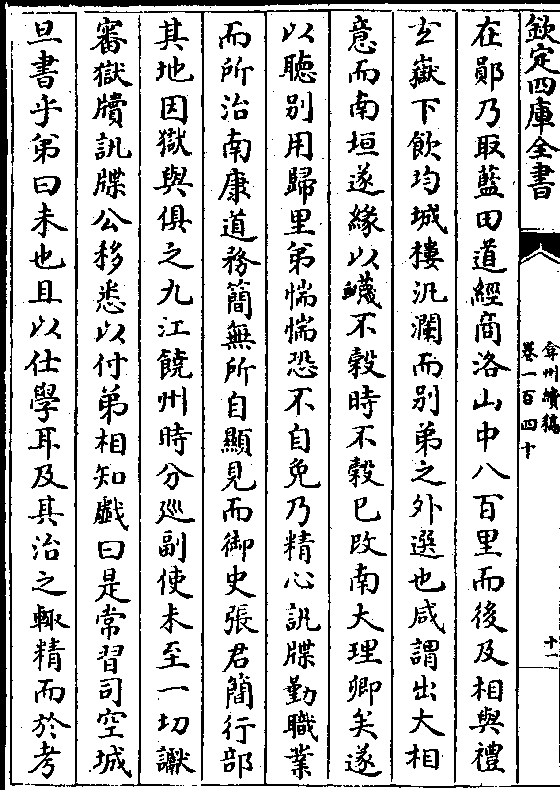 欽定四庫全書
弇州續稿
卷一百四十
十一
在鄖乃取藍田道經商洛山中八百里而後及相與禮
玄嶽下飲均城樓汎瀾而別弟之外選也咸謂出大相
意而南垣遂緣以蠛不穀時不穀已改南大理卿矣遂
以聽別用歸里弟惴惴恐不自免乃精心訊牒勤職業
而所治南康道務簡無所自顯見而御史張君簡行部
其地因獄與俱之九江饒州時分廵副使未至一切讞
審獄牘訊牒公移悉以付弟相知戲曰是常習司空城
旦書乎弟曰未也且以仕學耳及其治之輒精而於考